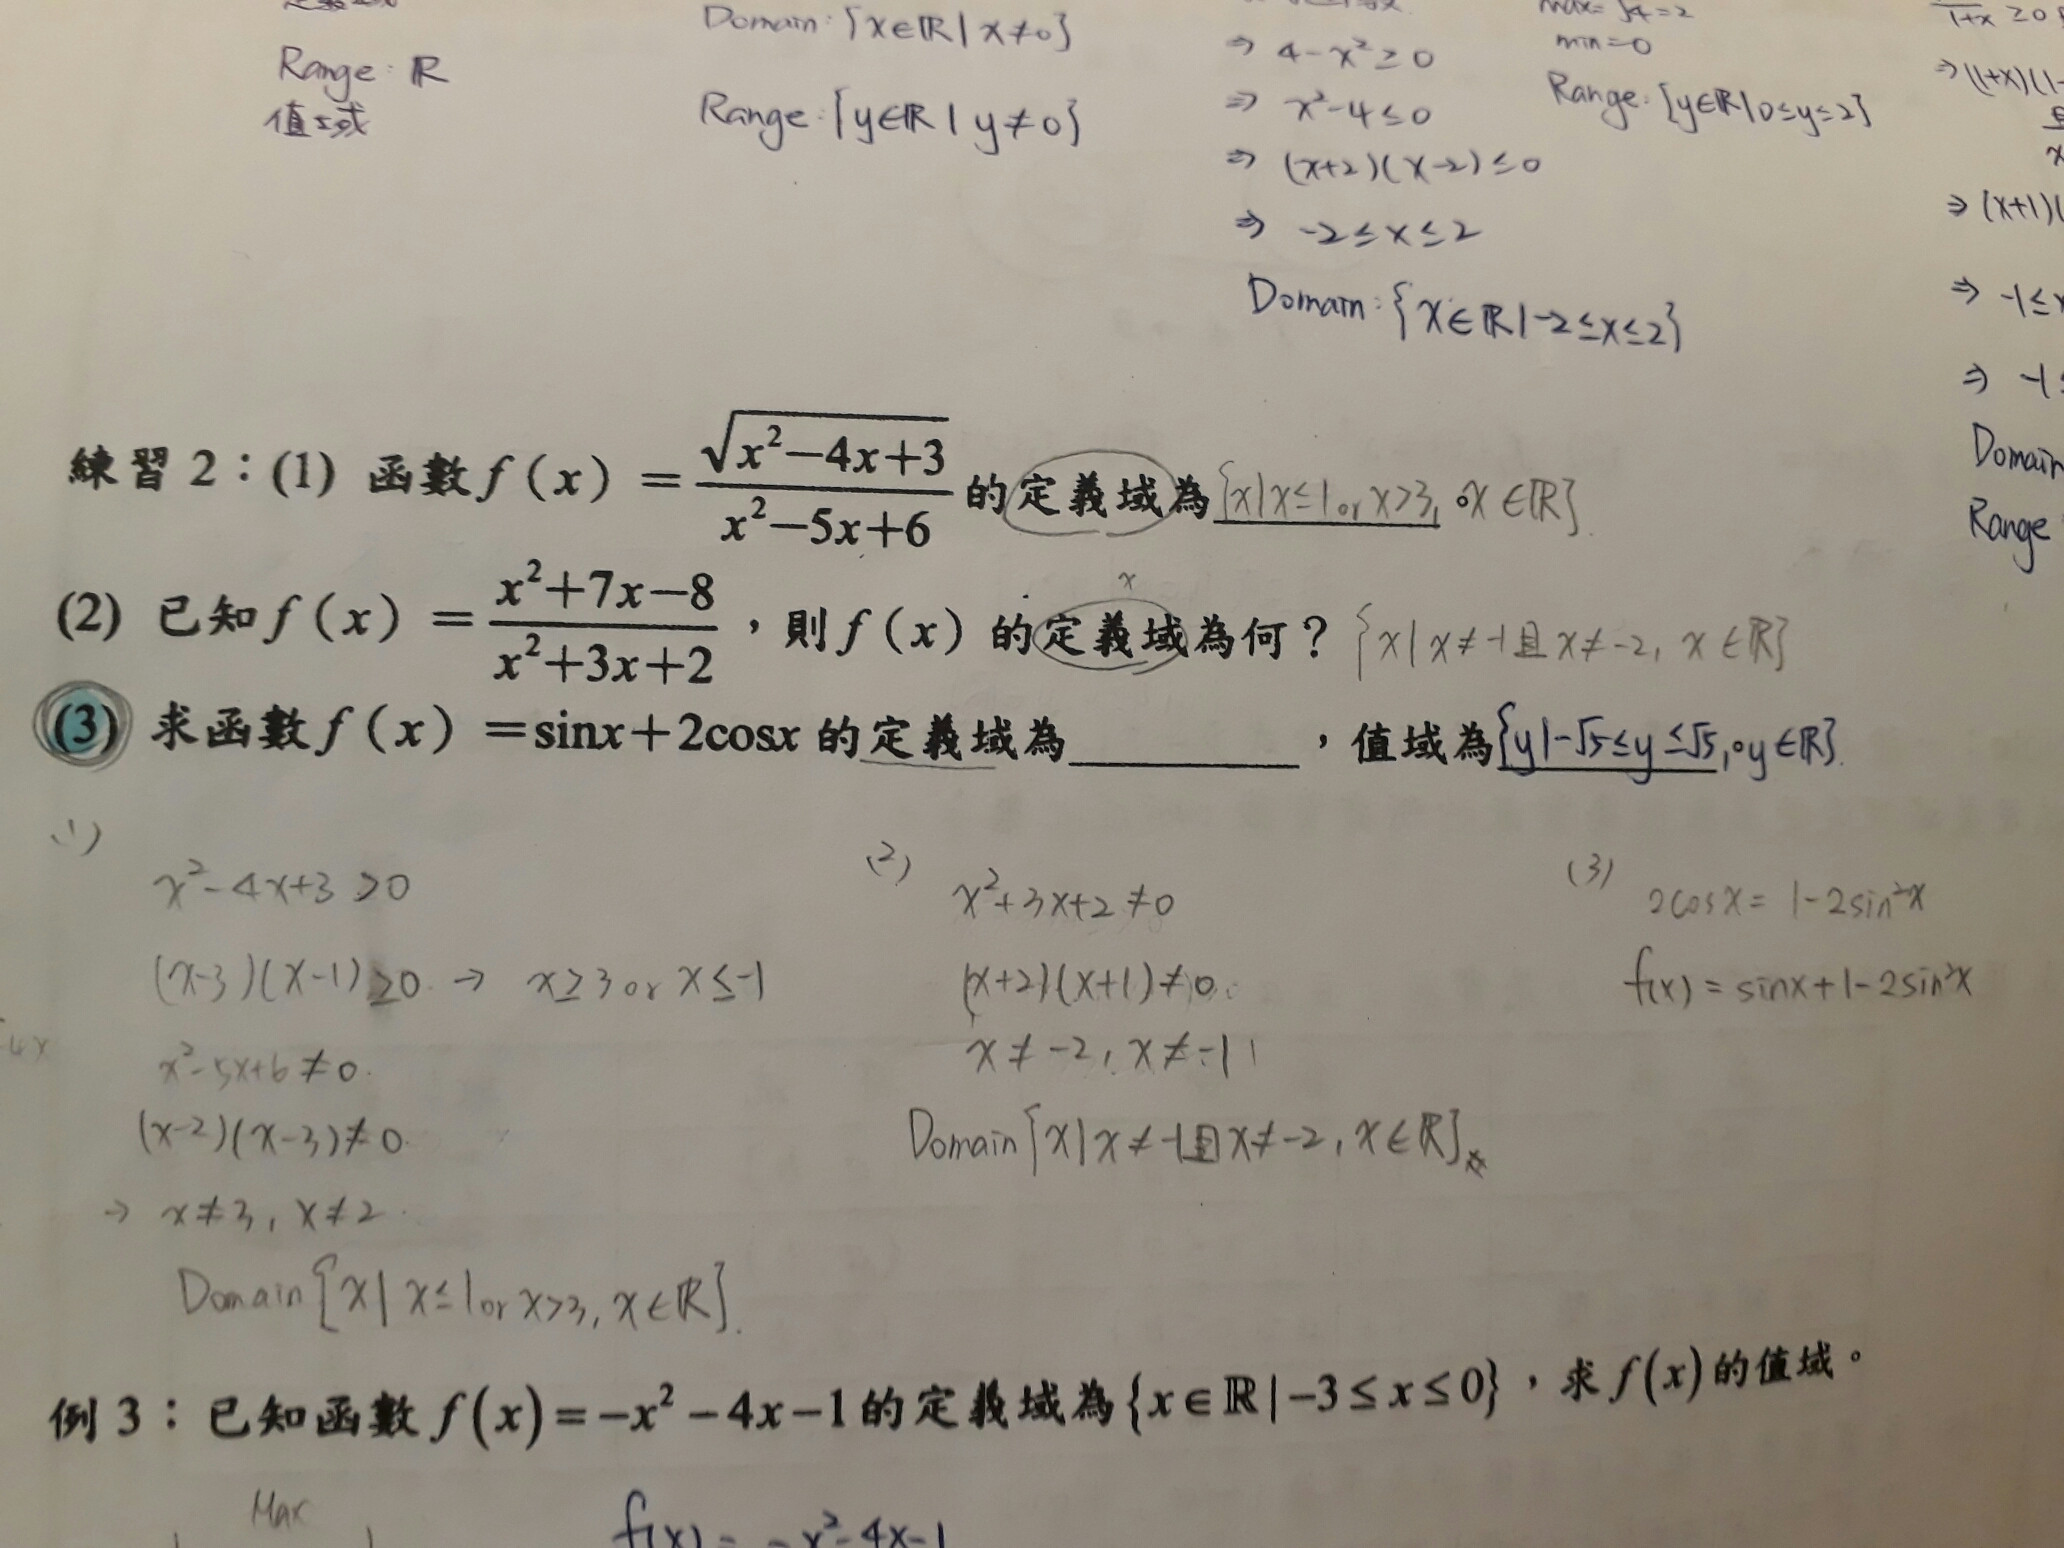 Range: ℝ
值域
Domain: {x∈ℝ | x≠0}
Range: {y∈ℝ | y≠0}
⇒ 4-x²≥0
⇒ x²-4≤0
⇒ (x+2)(x-2)≤0
⇒ -2≤x≤2
Domain: {x∈ℝ | -2≤x≤2}
max=√4=2
min=0
Range: {y∈ℝ | 0≤y≤2}
1+x ≥0
⇒ (1+x)(1-
⇒ (x+1)(
⇒ -1≤x
⇒ -1≤
Domain
Range
練習2：(1) 函數 f(x) = √(x²-4x+3) / (x²-5x+6) 的定義域為 {x | x≤1 or x>3, x∈ℝ}.
x
(2) 已知 f(x) = (x²+7x-8) / (x²+3x+2)，則 f(x) 的定義域為何？ {x | x≠-1且x≠-2, x∈ℝ}
(3) 求函數 f(x) =sinx+2cosx 的定義域為________，值域為{y | -√5≤y≤√5, y∈ℝ}.
(1)
x²-4x+3≥0
(x-3)(x-1)≥0. → x≥3 or x≤-1
x²-5x+6≠0.
(x-2)(x-3)≠0.
→ x≠3, x≠2.
Domain {x | x≤1 or x>3, x∈ℝ}.
(2)
x²+3x+2≠0
(x+2)(x+1)≠0.
x≠-2, x≠-1
Domain {x | x≠-1且x≠-2, x∈ℝ}
(3)
2cosx = 1-2sin²x
f(x) = sinx+1-2sin²x
例3：已知函數 f(x)=-x²-4x-1的定義域為{x∈ℝ | -3≤x≤0}，求 f(x)的值域。
Max
f(x) = -x²-4x-1